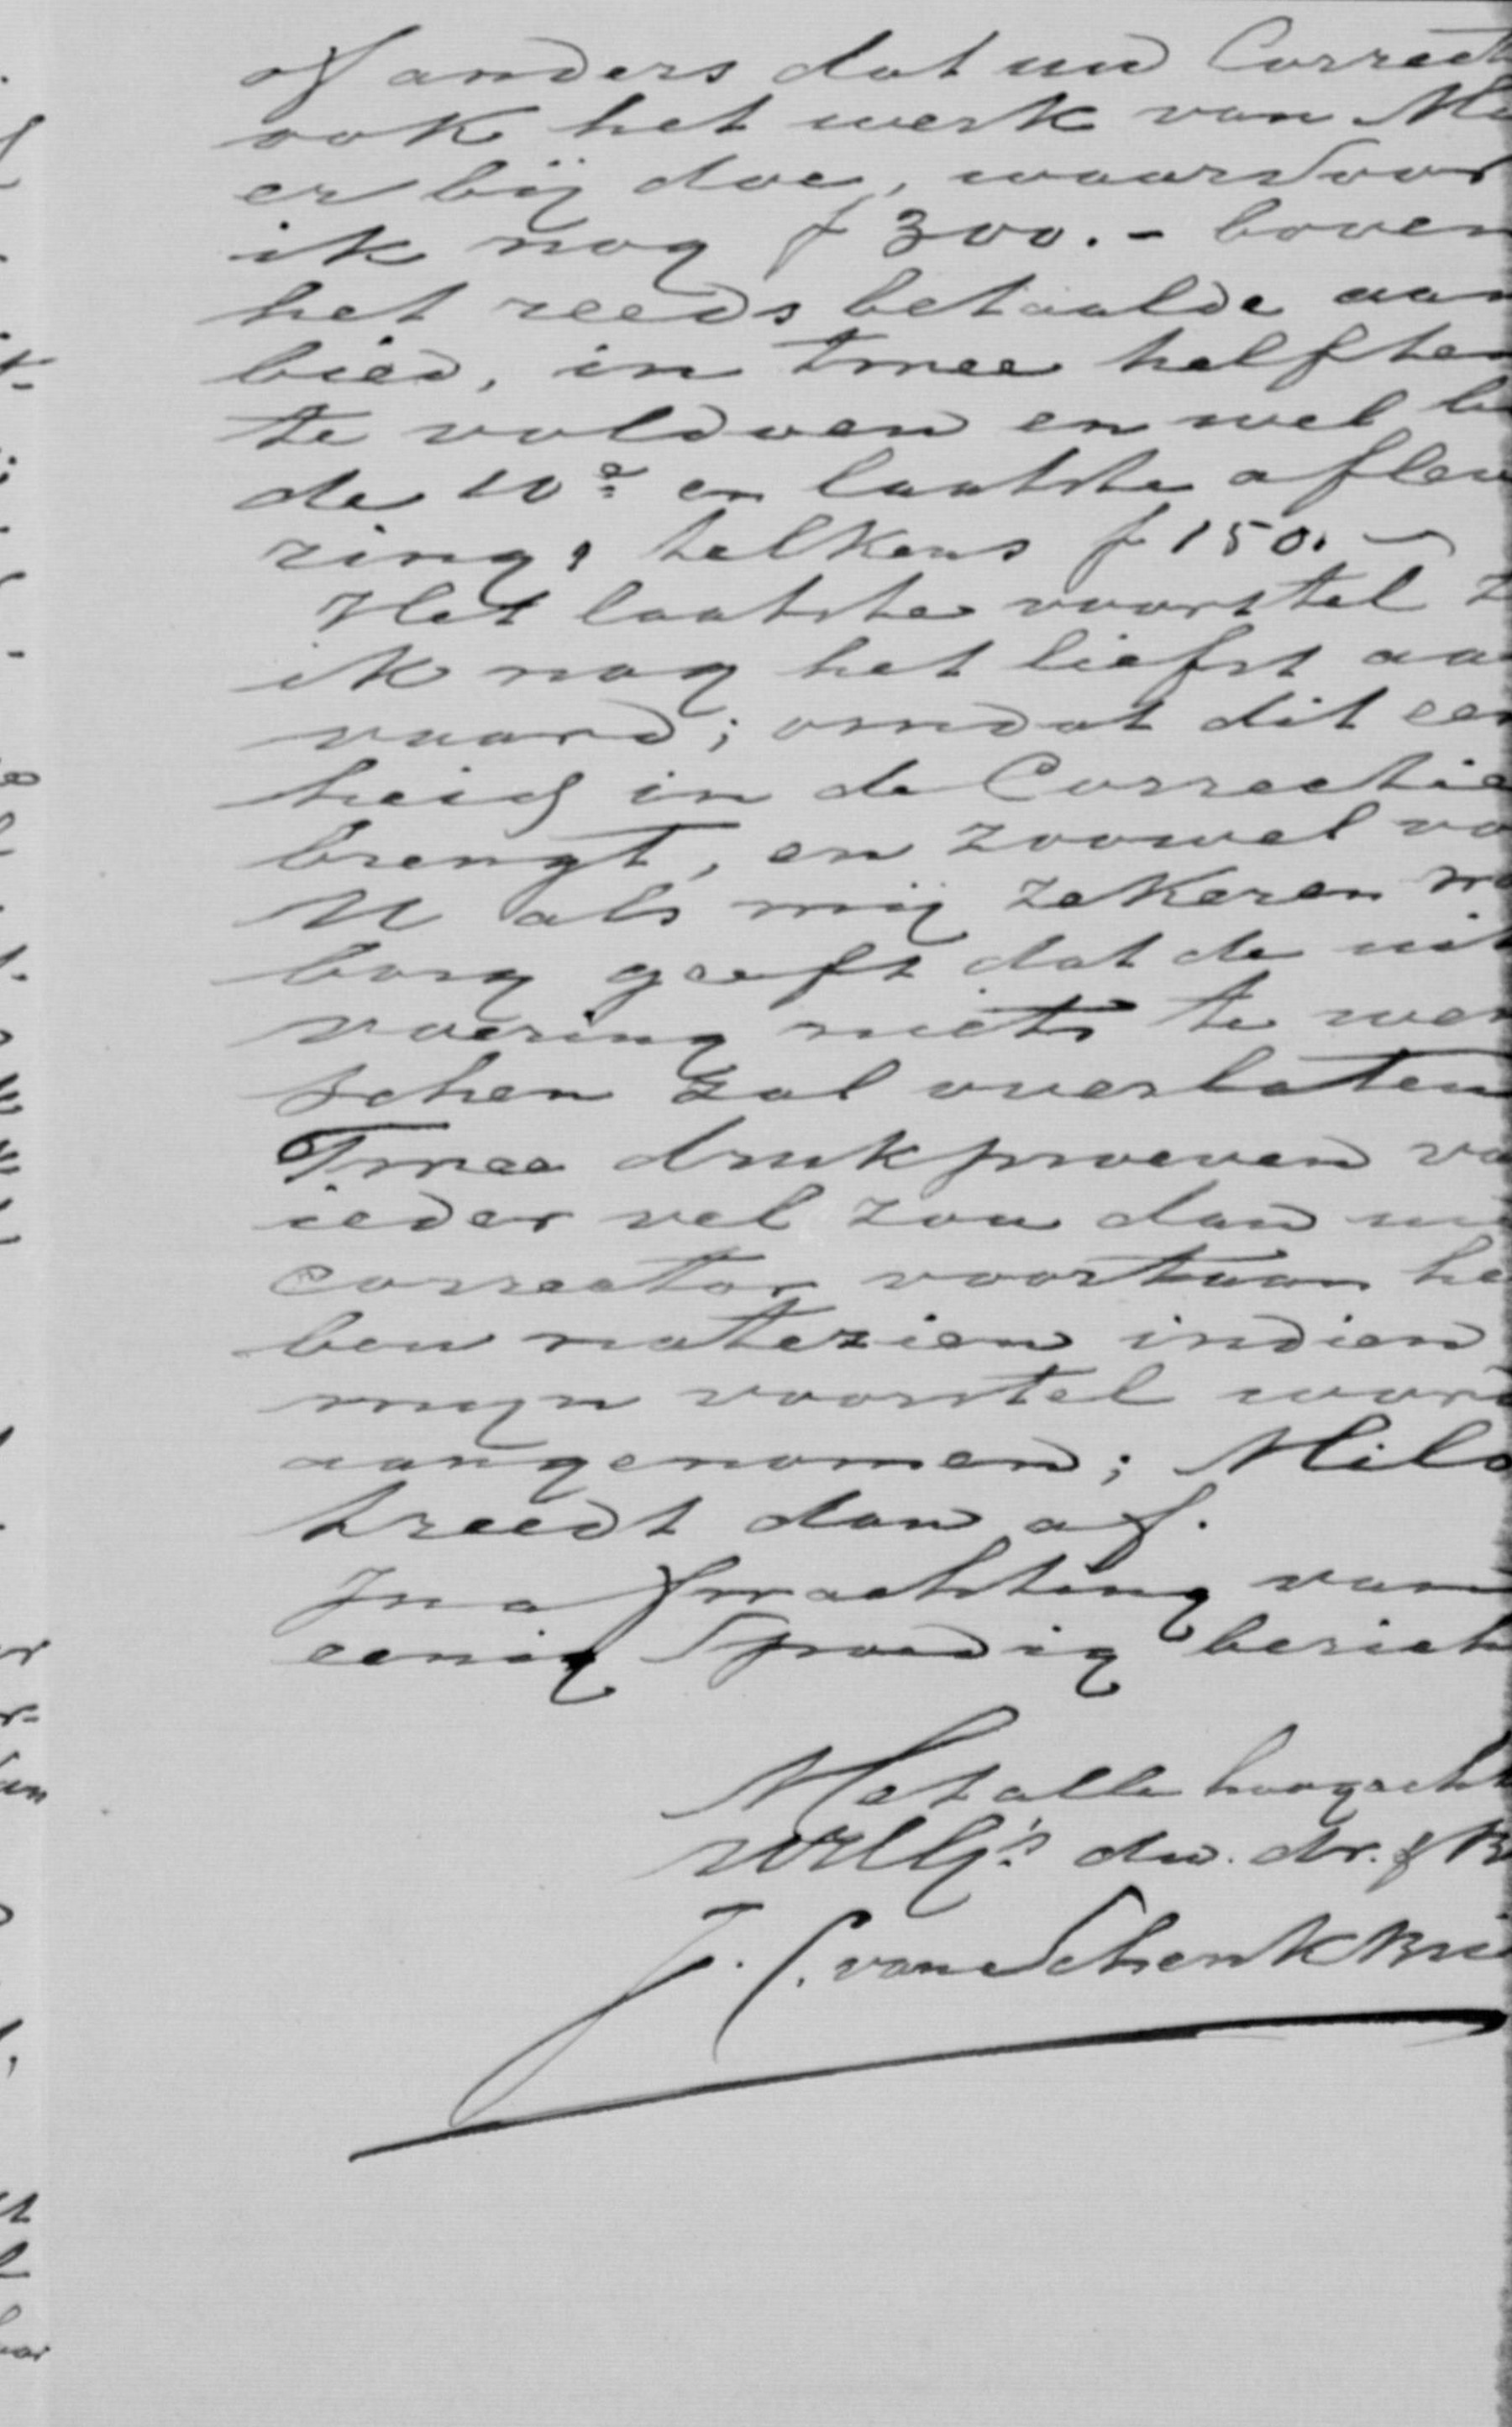 of anders dat uw Correct
ook het werk van Mi
er bij doe, waarvoor
ik nog f 300.- boven
het reeds betaalde aan
bied, in twee helften
te voldoen en wel b
de 10e en laatste aflev
ring, telkens f 150.-
Het laatste voorstel z
ik nog het liefst aa
vaard; omdat dit een
heid in de Correctie
brengt, en zoowel vo
U als mij zekeren wa
borg geeft dat de uit
voering niets te wen
schen zal overlaten
Twee drukproeven va
ieder vel zou dan uw
corrector voortaan he
ben natezien indien
mijn voorstel word
aangenomen; Milo
treedt dan af.
In afwachting van
eenig spoedig bericht
Met alle hoogacht
UWEG's dw. dr. & B
J. C. van Schenk Bri